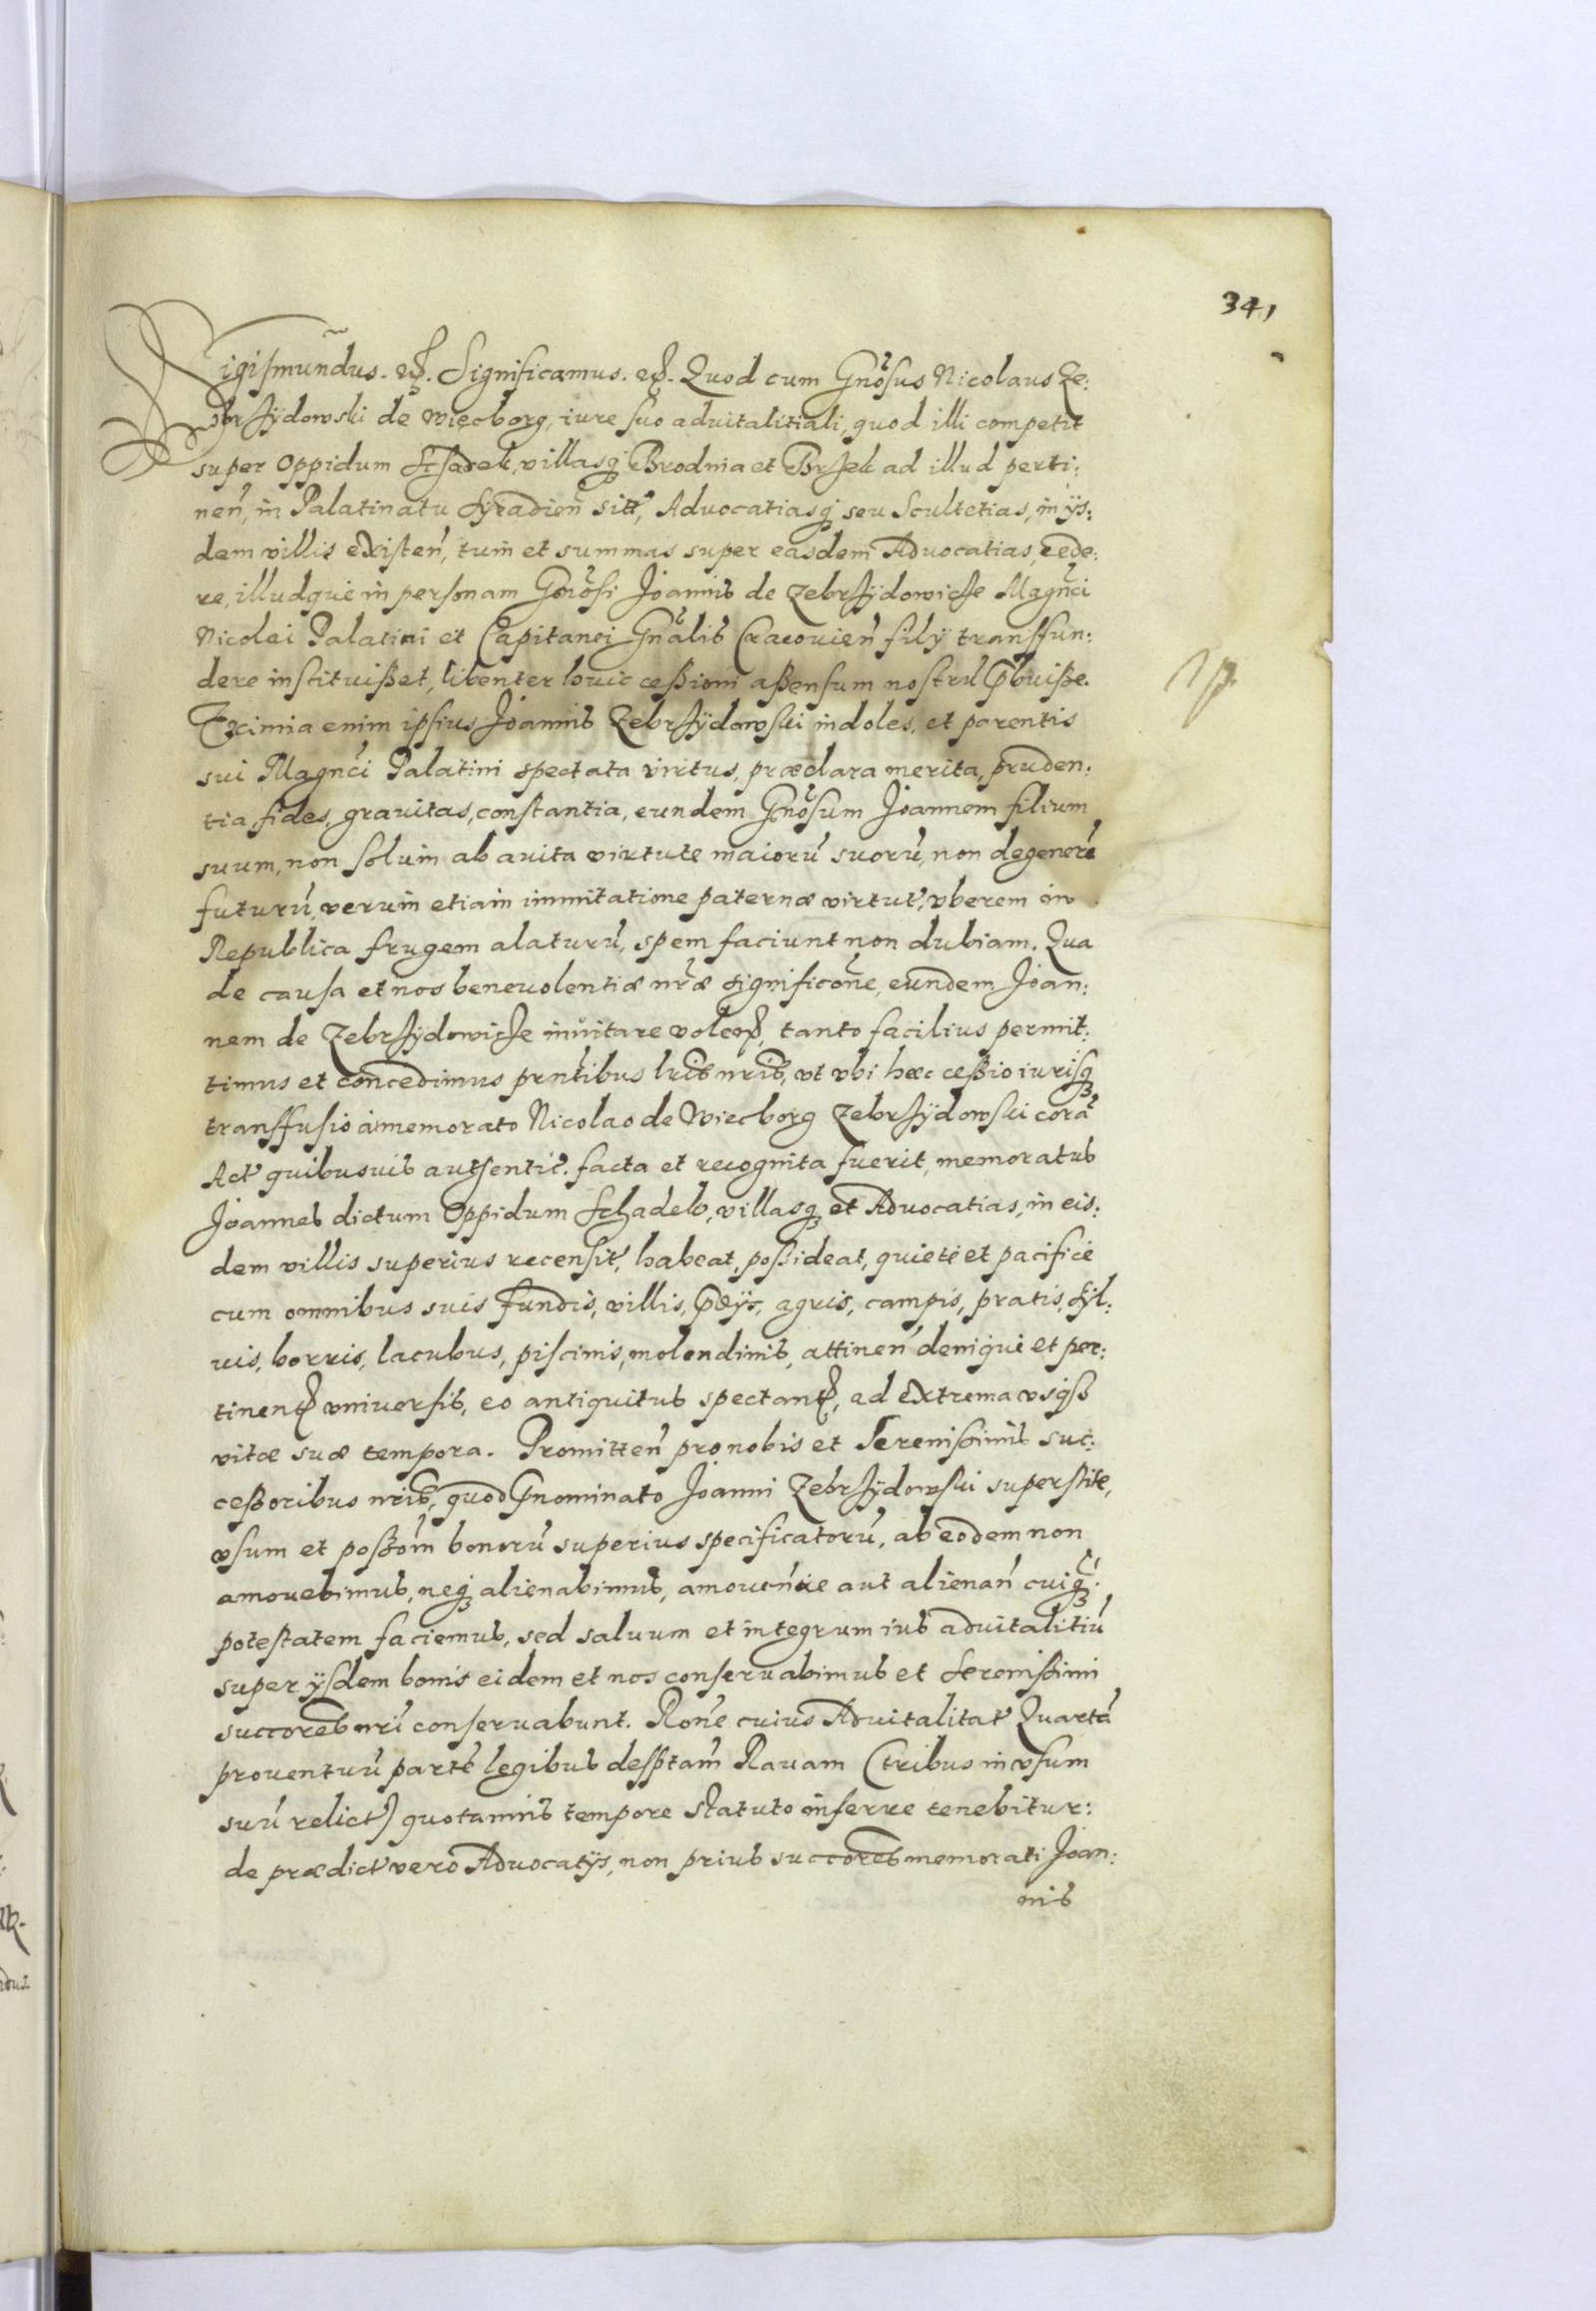 341
Sigismundus. etc. Significamus. etc. Quod cum Gnosus Nicolaus Ze:
brzÿdowski de Więcborg, iure suo aduitalitiali, quod illi competit
super Oppidum Schadek, villasq Brodnia et Brzek ad illud perti:
nen, in Palatinatu Syradien sitt, Aduocatiasq seu Scultetias, in ÿs:
dem villis existen, tum et summas super easdem Aduocatias, cede:
re, illudque in personam Gnosi Joannis de Zebrzÿdowicze Magnci
Nicolai Palatini et Capitanei Gnalis Cracouien filÿ transfun:
dere instituißet, libenter huic ceßioni aßensum nostru pbuiße.
Eximia enim ipsius Joannis Zebrzÿdowski indoles, et parentis
sui Magnci Palatini spectata virtus, præclara merita, pruden:
tia, fides, grauitas, constantia, eundem Gnosum Joannem filium
suum, non solum ab auita virtute maioru suoru, non degenere
futuru, verum etiam immitatione paternæ virtut, vberem in
Republica frugem alaturu, spem faciunt non dubiam. Qua
de causa et nos beneuolentiæ nræ significone, eundem Joan:
nem de Zebrzÿdowicze inuitare volentes, tanto facilius permit:
timus et concedimus prntibus lris nris, vt vbi hæc ceßio iurisq
transfusio à memorato Nicolao de Wiecborg Zebrzÿdowski cora
Act quibusuis authentic. facta et recognita fuerit, memoratus
Joannes dictum Oppidum Schadek, villasq et Aduocatias, in eis:
dem villis superius recensit, habeat, poßideat, quiete et pacifice
cum omnibus suis fundis, villis, pdÿs, agris, campis, pratis, syl:
uis, borris, lacubus, piscinis, molendinis, attinen denique et per:
tinent vniuersis, eo antiquitus spectant, ad extrema vsq
vitæ suæ tempora. Promitten pro nobis et Serenißimis suc:
ceßoribus nris, quod pnominato Joanni Zebrzÿdowski superstite,
vsum et poßom bonoru superius specificatoru, ab eodem non
amouebimus, neq alienabimus, amouendie aut alienan cuiq.
potestatem faciemus, sed saluum et integrum ius aduitalitiu
super ÿsdem bonis eidem et nos conseruabimus et Serenißimi
succores nri conseruabunt. Rone cuius Aduitalitat Quarta
prouentuu parte legibus desptam Rauam (tribus in vsum
suu relict) quotannis tempore statuto inferre tenebitur:
de prædict vero Aduocatÿs, non prius succores memorati Joan:
nis